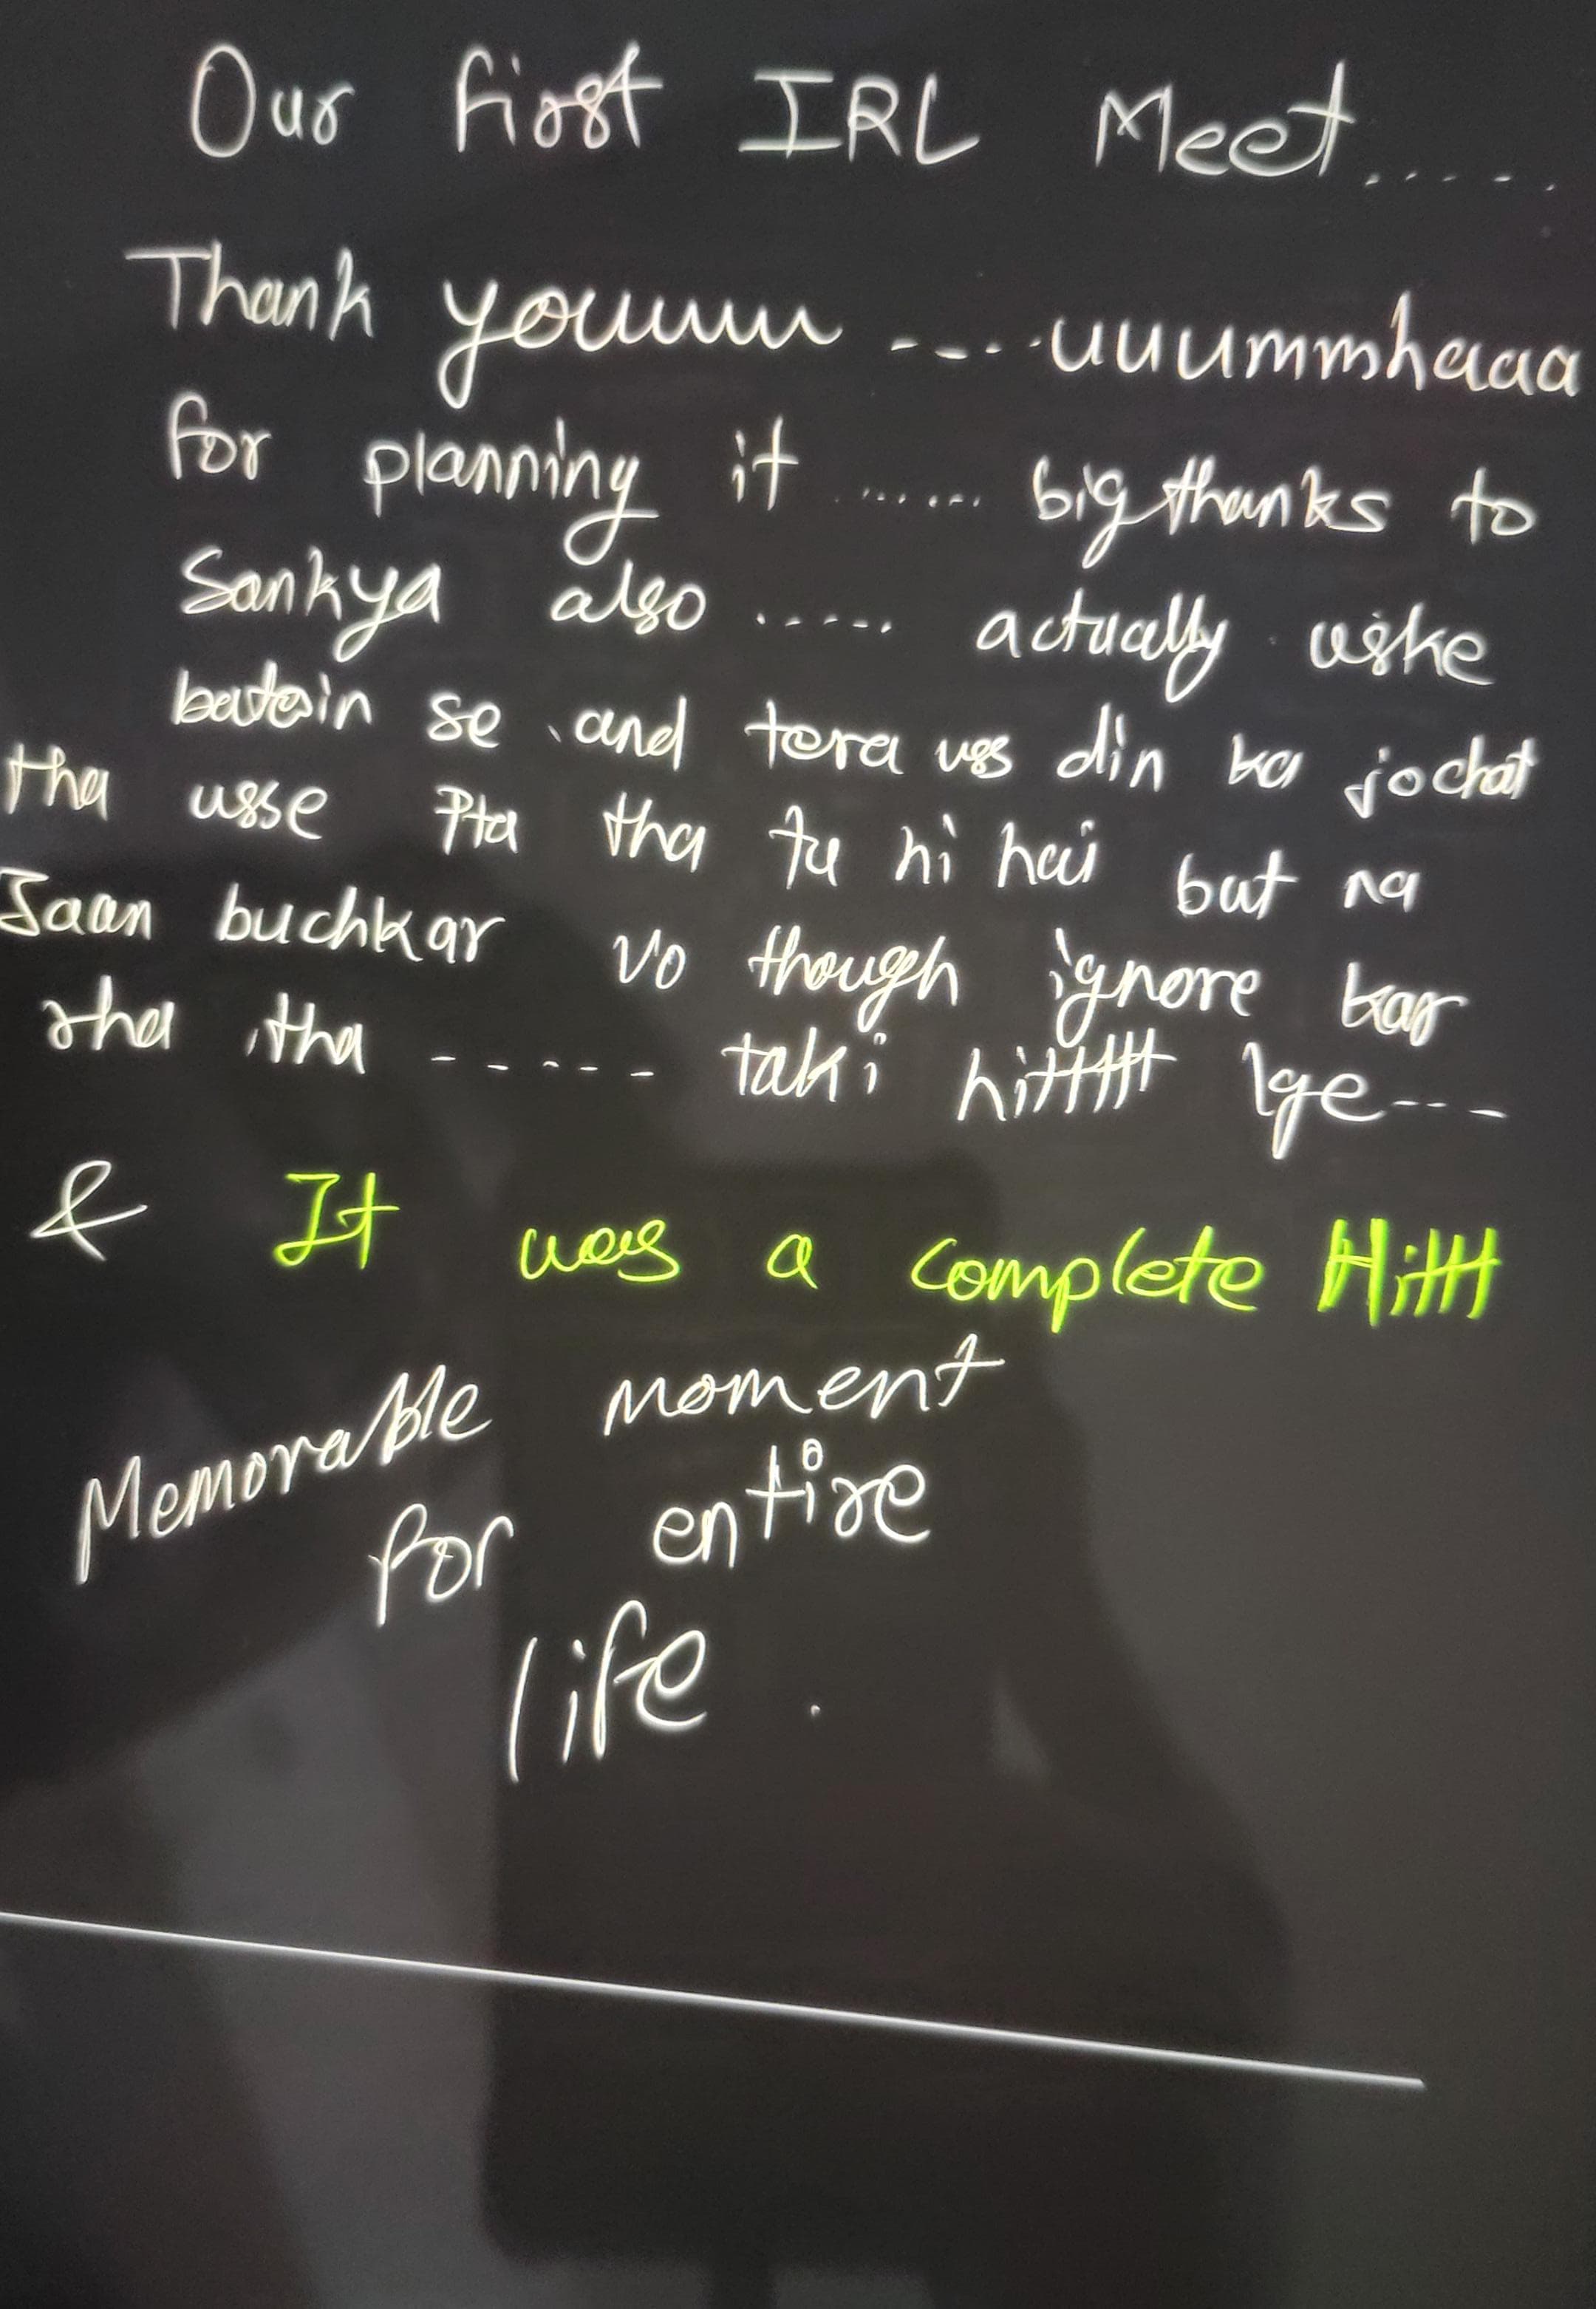 Our first IRL Meet......
Thank youuuu ....uuummmhaaa
for planning it ....... big thanks to
Sankya also ...... actually uske
batein se and tera uss din ka jo chat
tha usse Pta tha tu hi hai but na
Jaan buchkar vo though ignore kar
rha tha ------ taki hitttttt lge---
& It was a complete Hitttt
Memorable moment
for entire
life.